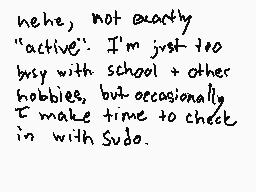 hehe, not exactly
"active". I'm just too
busy with school + other
hobbies, but occasionally
I make time to check
in with Sudo.